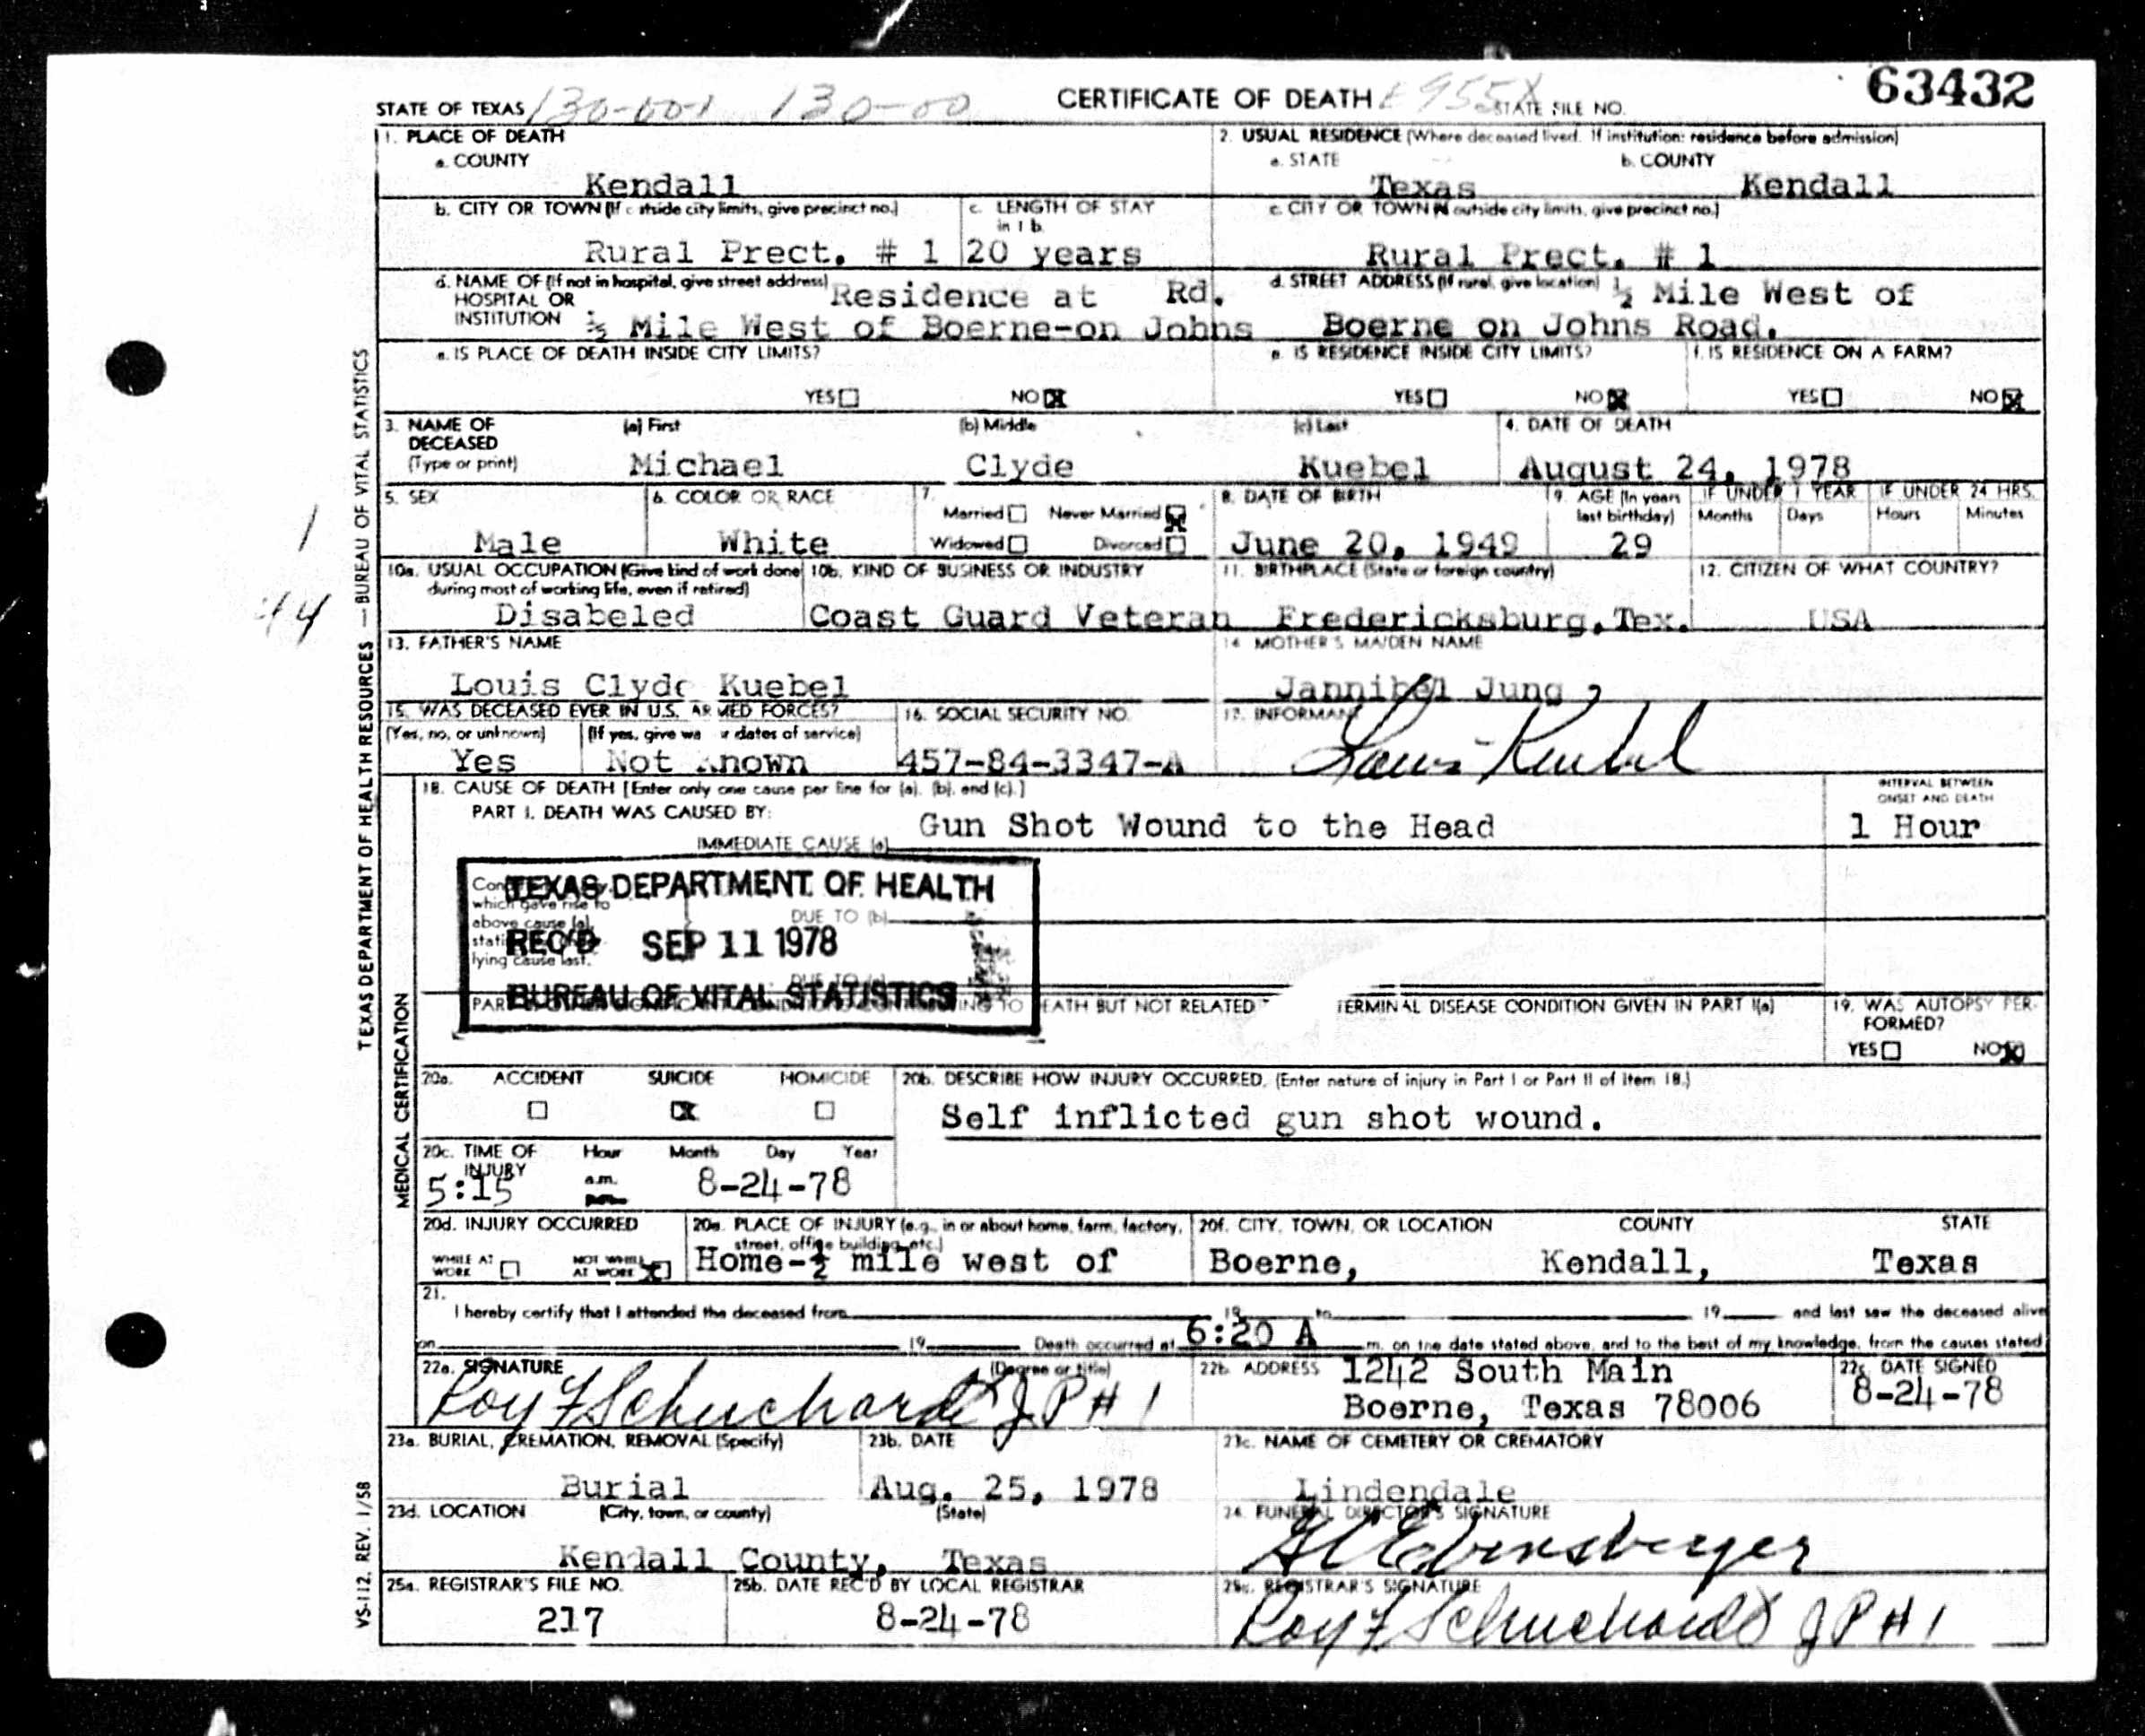 63432
STATE OF TEXAS 130-001 130-00 CERTIFICATE OF DEATH E955X STATE FILE NO.
1. PLACE OF DEATH
a. COUNTY
Kendall
2. USUAL RESIDENCE (Where deceased lived. If institution: residence before admission)
a. STATE b. COUNTY
Texas Kendall
b. CITY OR TOWN (If outside city limits, give precinct no.)
Rural Prect. # 1
c. LENGTH OF STAY
in 1 b.
20 years
c. CITY OR TOWN (If outside city limits, give precinct no.)
Rural Prect. # 1
d. NAME OF (If not in hospital, give street address)
HOSPITAL OR
INSTITUTION
Residence at Rd.
½ Mile West of Boerne-on Johns
d. STREET ADDRESS (If rural, give location) ½ Mile West of
Boerne on Johns Road.
e. IS PLACE OF DEATH INSIDE CITY LIMITS?
YES NO X
e. IS RESIDENCE INSIDE CITY LIMITS?
YES NO X
f. IS RESIDENCE ON A FARM?
YES NO X
3. NAME OF
DECEASED
(Type or print)
(a) First (b) Middle (c) Last
Michael Clyde Kuebel
4. DATE OF DEATH
August 24, 1978
5. SEX
Male
6. COLOR OR RACE
White
7.
Married Never Married X
Widowed Divorced
8. DATE OF BIRTH
June 20, 1949
9. AGE (In years
last birthday)
29
IF UNDER 1 YEAR
Months Days
IF UNDER 24 HRS.
Hours Minutes
10a. USUAL OCCUPATION (Give kind of work done
during most of working life, even if retired)
Disabeled
10b. KIND OF BUSINESS OR INDUSTRY
Coast Guard Veteran
11. BIRTHPLACE (State or foreign country)
Fredericksburg, Tex.
12. CITIZEN OF WHAT COUNTRY?
USA
13. FATHER'S NAME
Louis Clyde Kuebel
14. MOTHER'S MAIDEN NAME
Jannibel Jung
15. WAS DECEASED EVER IN U.S. ARMED FORCES?
(Yes, no, or unknown) (If yes, give wa r dates of service)
Yes Not Known
16. SOCIAL SECURITY NO.
457-84-3347-A
17. INFORMANT
Louis Kuebel
18. CAUSE OF DEATH [Enter only one cause per line for (a), (b), and (c).]
PART I. DEATH WAS CAUSED BY:
IMMEDIATE CAUSE (a) Gun Shot Wound to the Head
INTERVAL BETWEEN
ONSET AND DEATH
1 Hour
which gave rise to
above cause (a)
lying cause last.
DUE TO (b)
DUE TO (c)
TEXAS DEPARTMENT OF HEALTH
REC'D SEP 11 1978
BUREAU OF VITAL STATISTICS
DEATH BUT NOT RELATED TERMINAL DISEASE CONDITION GIVEN IN PART I(a)
19. WAS AUTOPSY PER-
FORMED?
YES NO X
20a. ACCIDENT SUICIDE HOMICIDE
X
20b. DESCRIBE HOW INJURY OCCURRED. (Enter nature of injury in Part I or Part II of Item 18.)
Self inflicted gun shot wound.
20c. TIME OF
INJURY
Hour Month Day Year
5:15 a.m. p.m. 8-24-78
20d. INJURY OCCURRED
WHILE AT
WORK
NOT WHILE
AT WORK X
20e. PLACE OF INJURY (e.g., in or about home, farm, factory,
street, office building, etc.)
Home-½ mile west of
20f. CITY, TOWN, OR LOCATION COUNTY STATE
Boerne, Kendall, Texas
21.
I hereby certify that I attended the deceased from 19 to 19 and last saw the deceased alive
on 19 Death occurred at 6:20 A m. on the date stated above, and to the best of my knowledge, from the causes stated
22a. SIGNATURE (Degree or title)
Roy F Schuchardt J.P #1
22b. ADDRESS 1242 South Main
Boerne, Texas 78006
22c. DATE SIGNED
8-24-78
23a. BURIAL, CREMATION, REMOVAL (Specify)
Burial
23b. DATE
Aug. 25, 1978
23c. NAME OF CEMETERY OR CREMATORY
Lindendale
23d. LOCATION (City, town, or county) (State)
Kendall County, Texas
24. FUNERAL DIRECTOR'S SIGNATURE
Ebensberger
25a. REGISTRAR'S FILE NO.
217
25b. DATE REC'D BY LOCAL REGISTRAR
8-24-78
25c. REGISTRAR'S SIGNATURE
Roy F Schuchardt JP #1
1
44
TEXAS DEPARTMENT OF HEALTH RESOURCES — BUREAU OF VITAL STATISTICS
MEDICAL CERTIFICATION
VS-112, REV. 1/58